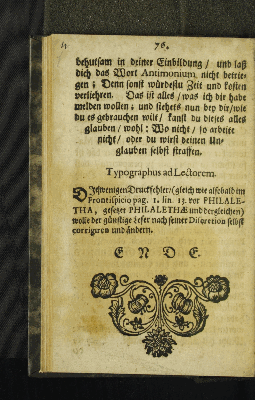 76.
behutsam in deiner Einbildung / und laß
dich das Wort Antimonium, nicht betrie-
gen; Denn sonst würdestu Zeit und Kosten
verliehren. Das ist alles / was ich dir habe
melden wollen; und stehets nun bey dir / wie
du es gebrauchen wilt / kanst du dieses alles
glauben / wohl: Wo nicht / so arbeite
nicht / oder du wirst deinen Un-
glauben selbst straffen.
Typographus ad Lectorem.
Die wenigen Druckfehler / (gleich wie alsobald im
Frontispicio pag. 1. lin. 13. vor PHILALE-
THA, gesetzet PHILALETHÆ und dergleichen)
wolle der günstige Leser nach seiner Discretion selbst
corrigiren und ändern.
E N D E.